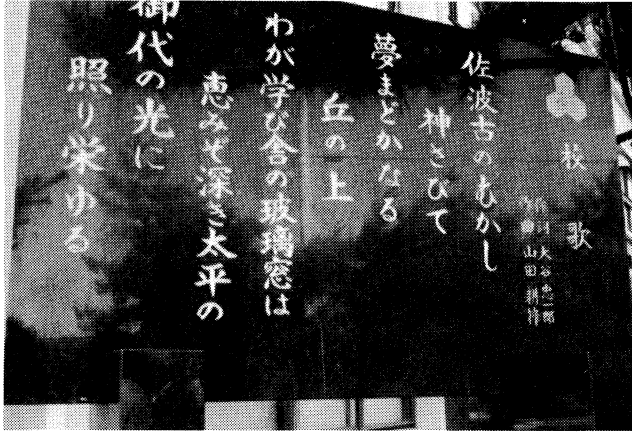 校歌
作詞 大谷忠一郎
作曲 山田耕筰
佐波古のむかし
神さびて
夢まどかなる
丘の上
わが学び舎の玻璃窓は
恵みぞ深き太平の
御代の光に
照り栄ゆる